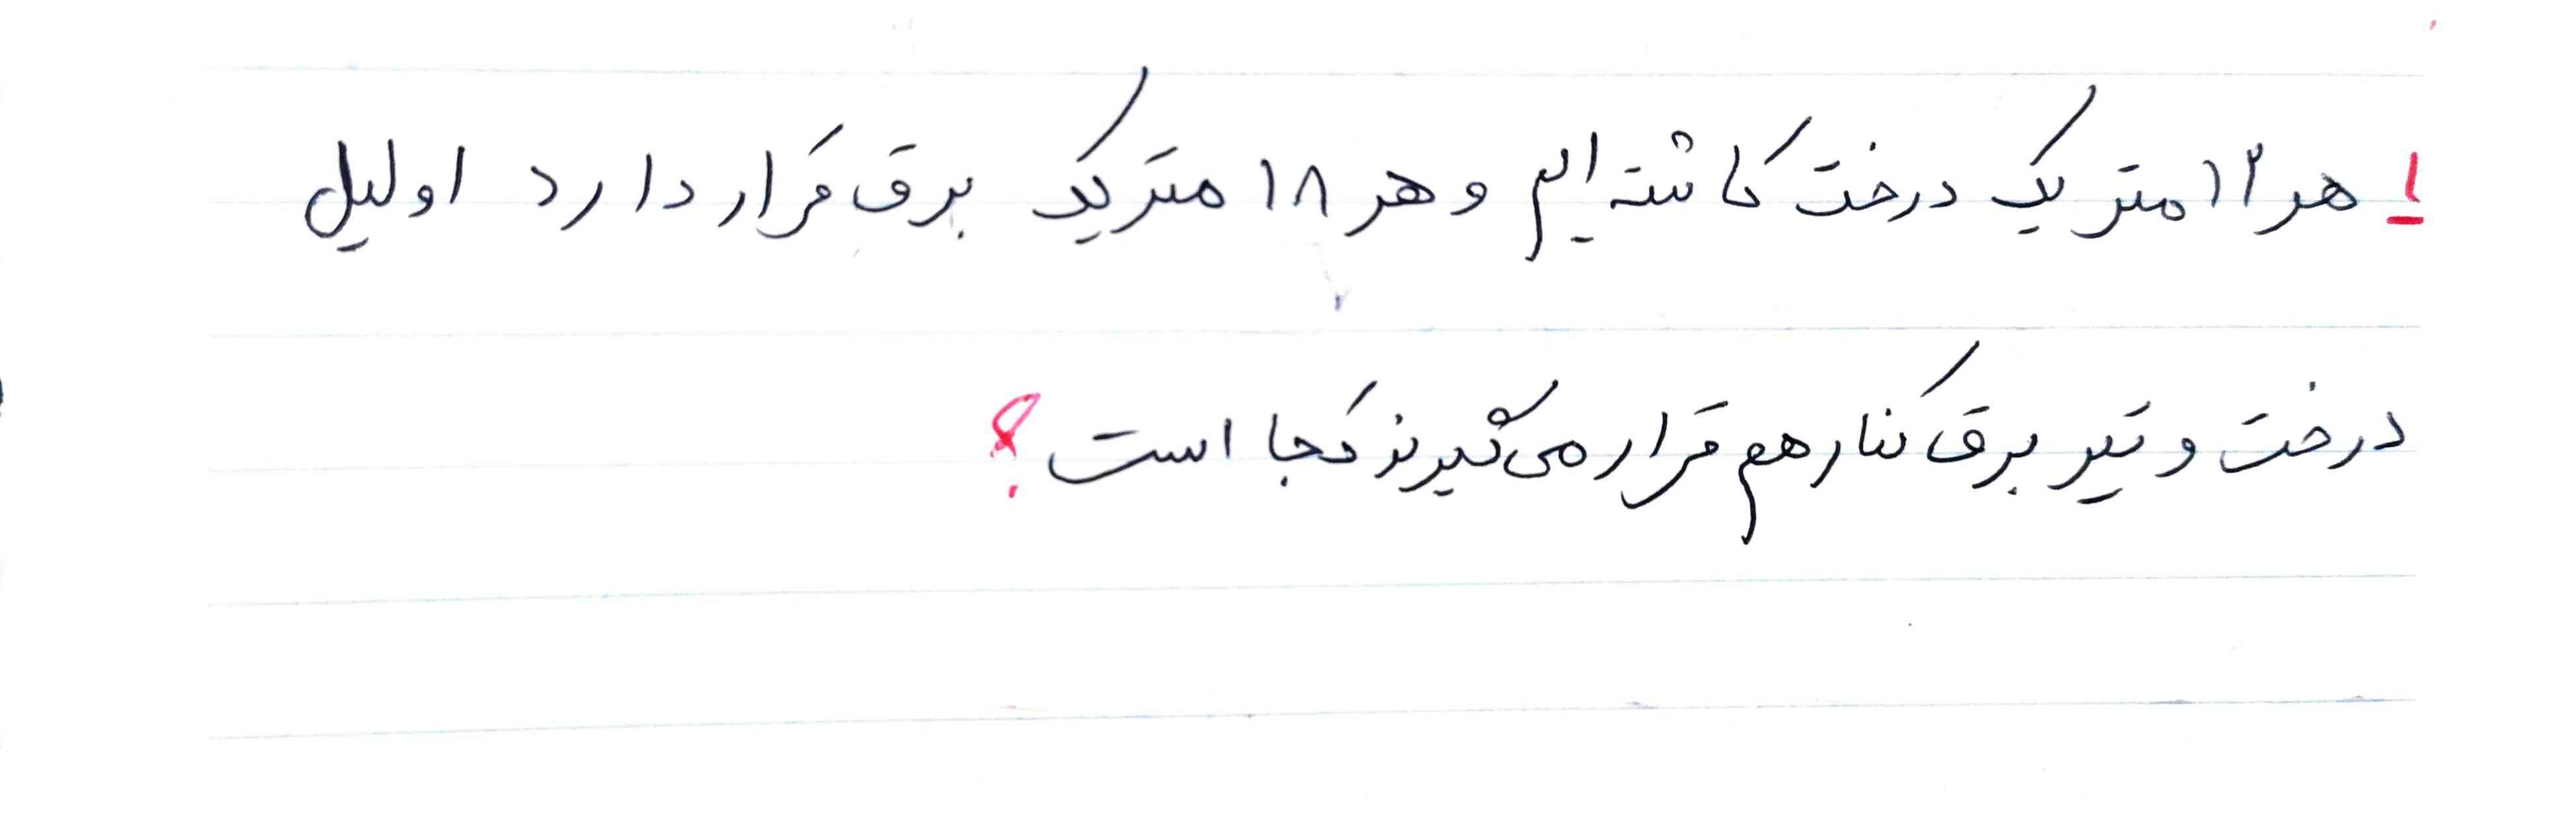 ۱ هر ۱۲ متر یک درخت کاشته ایم و هر ۱۸ متر یک برق قرار دارد اولیل
درخت و تیر برق کنار هم قرار می گیرند کجا است ؟